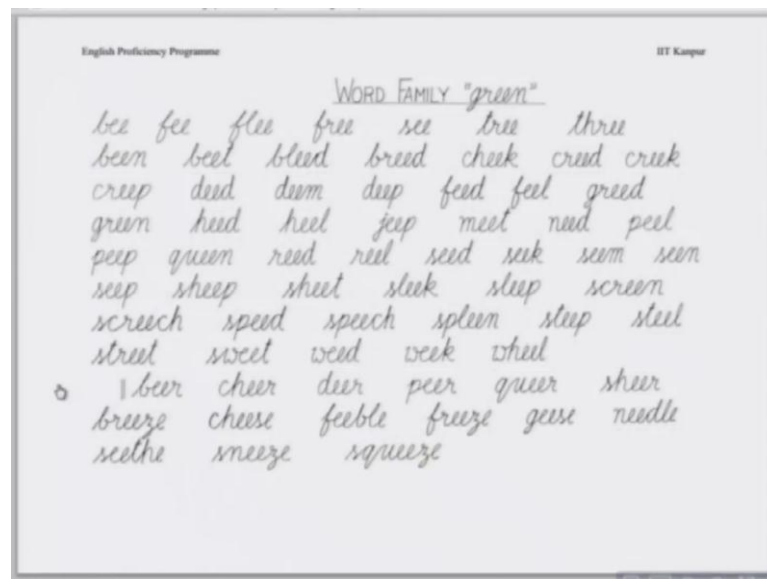 English Proficiency Programme IIT Kanpur
WORD FAMILY "green"
bee fee flee free see tree three
been beet bleed breed cheek creed creek
creep deed deem deep feed feel greed
green heed heel jeep meet need peel
peep queen reed reel seed seek seem seen
seep sheep sheet sleek sleep screen
screech speed speech spleen steep steel
street sweet weed week wheel
beer cheer deer peer queer sheer
breeze cheese feeble freeze geese needle
seethe sneeze squeeze